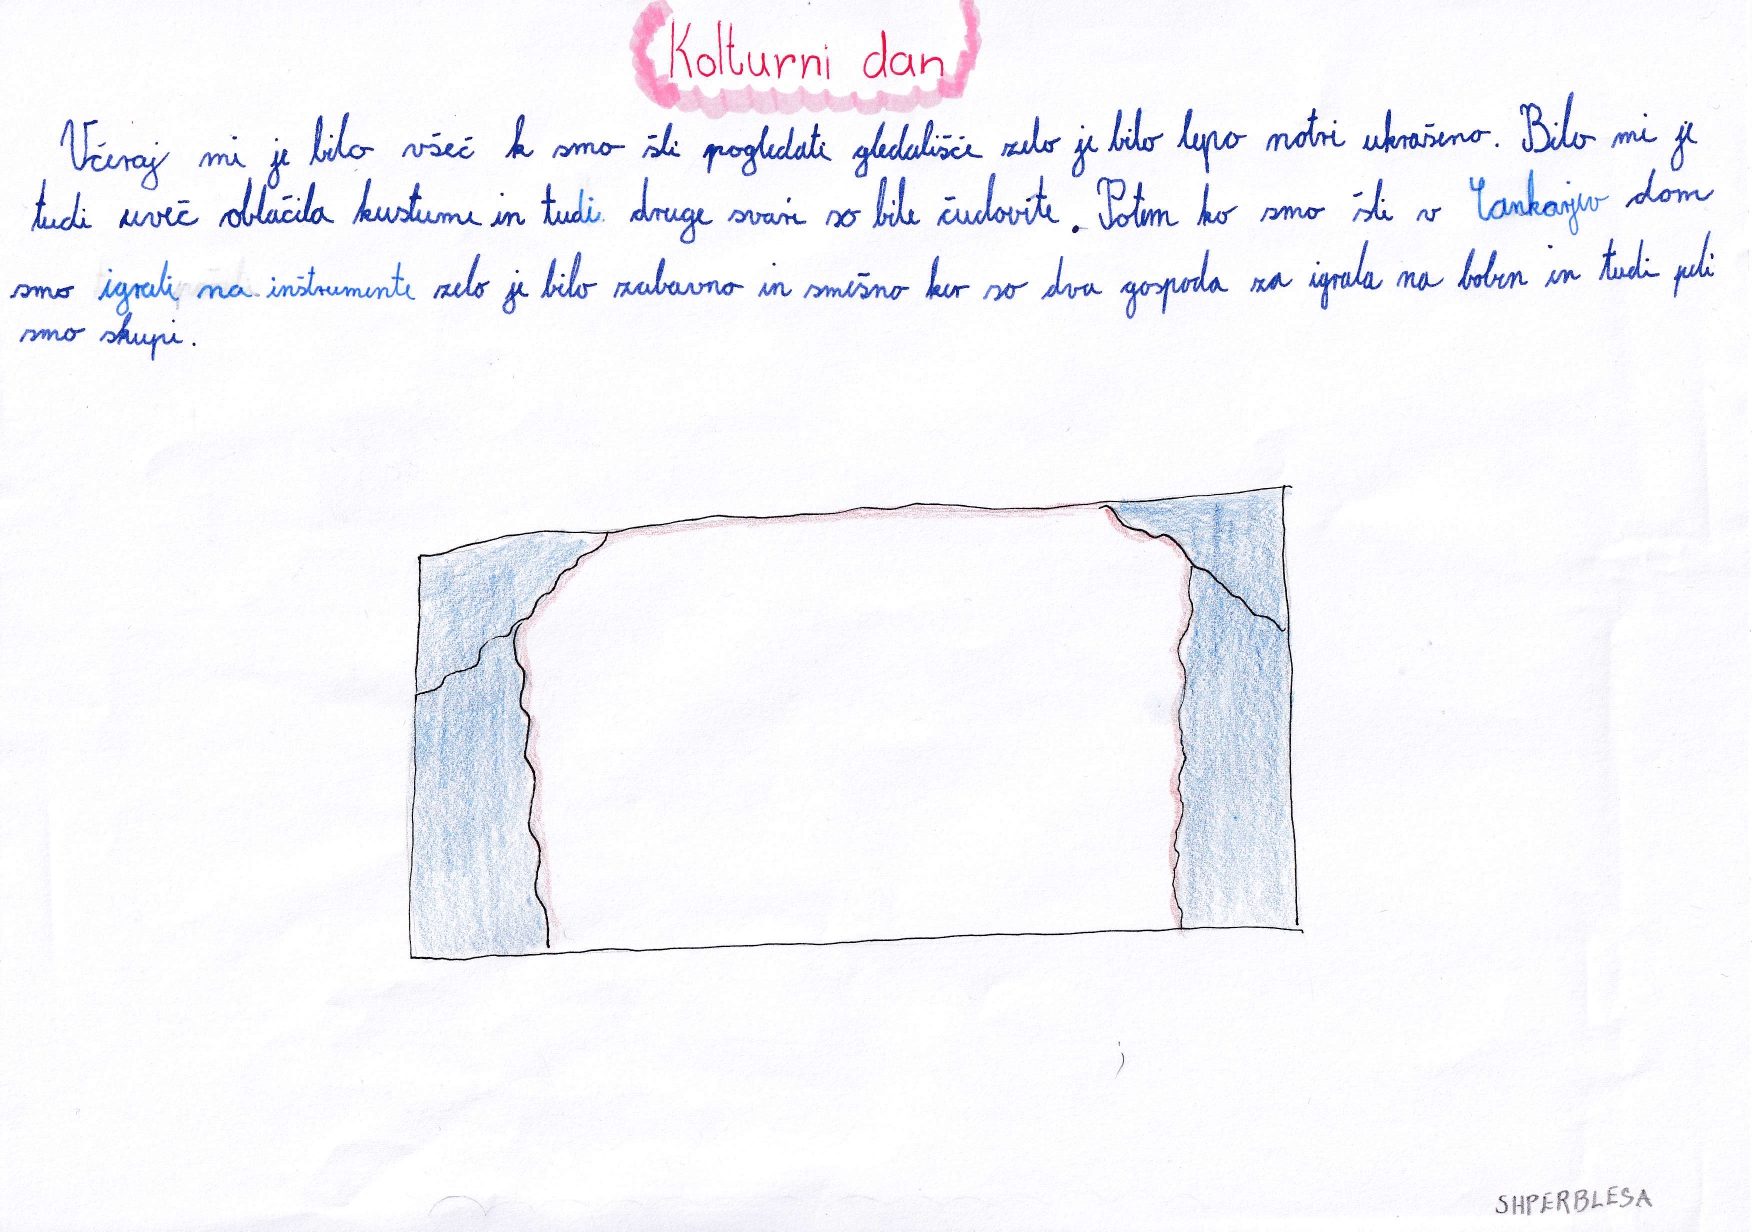 Kolturni dan
Včeraj mi je bilo všeč k smo šli pogledati gledališče zelo je bilo lepo notri ukrašeno. Bilo mi je
tudi uveč oblačila kustume in tudi druge svari so bile čudovite. Potem ko smo šli v Cankarjiv dom
smo igrali na inštrumente zelo je bilo zabavno in smešno ker so dva gospoda za igrala na bobn in tudi peli
smo skupi.
SHPERBLESA